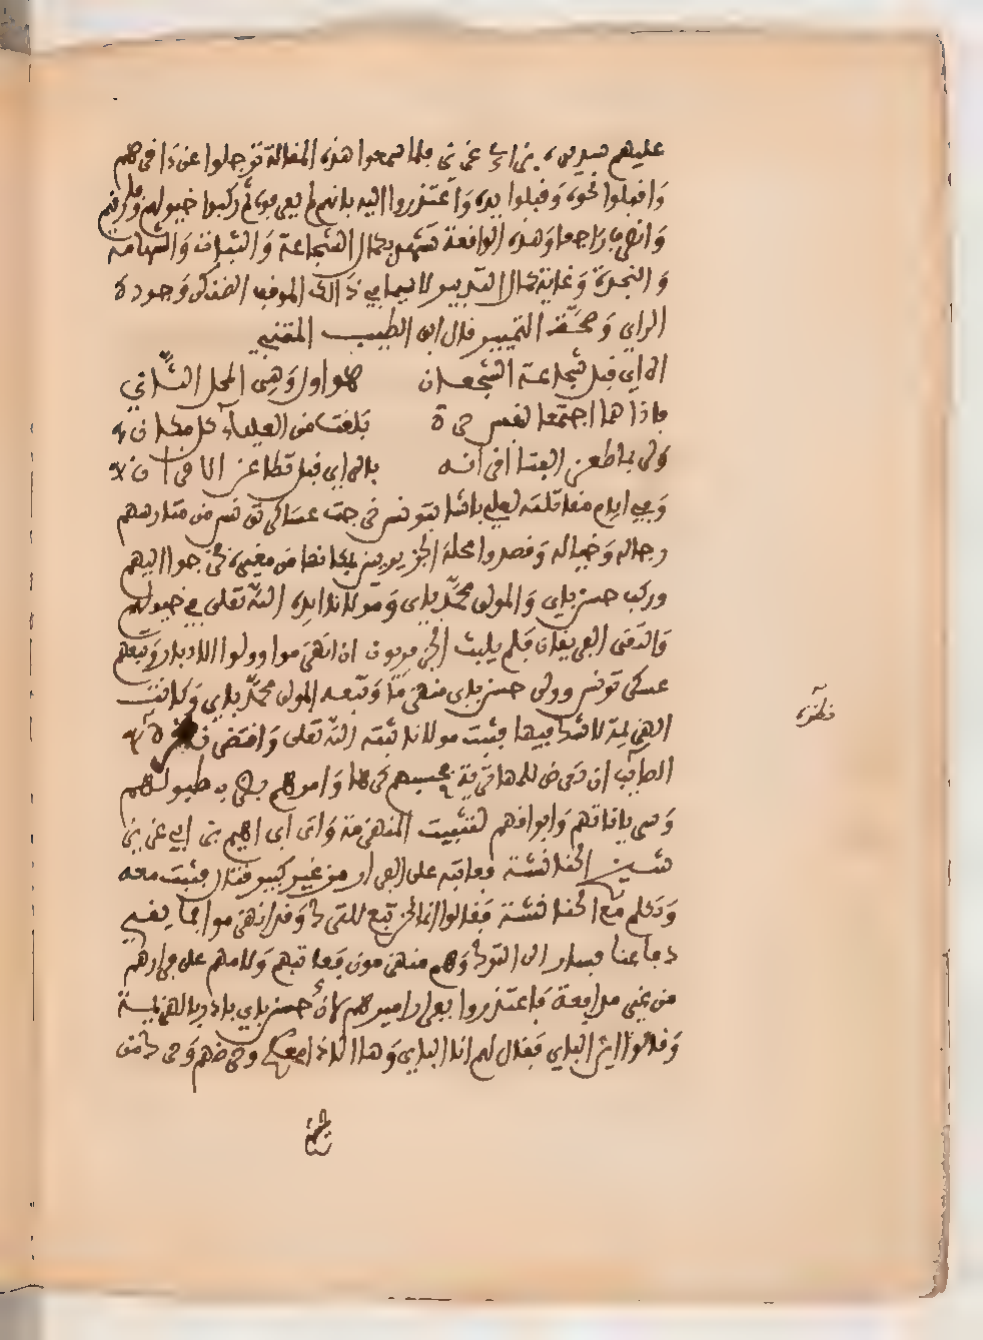 عليهم سيدي يزاي عربي فلما سمعوا هذه المقالة ترجلوا عن اخرهم
وَاقبلوا نحوه وَقبلوا يده وَاعتذروا اليه بانهم لم يعرفوه ثم ركبوا خيولهم
وَانصرفا راجعا وَهذه الواقعة تشهد بكمال الشجاعة وَالثبات وَالشهامة
وَالنجدة وَغاية كمال التدبير لا سيما في ذالك الموقف الضنك وَجودة
الراي وَصحّة التمييز قال ابو الطيب المتنبي
الراي قبل شجاعة الشجعان هو اول وَهي المحل الثاني
فاذا هما اجتمعا لنفس حرة بَلغت من العلياء كل مكان
وَلربما طعن الفتا اقرانه بالراي قبل تطاعن الاقران
وَفي ايام مقاتلته لعلي باشا بتونس خرجت عساكر تونس من متارسهم
رجاله وَخياله وَقصدوا محلة الجزيريين فخرجوا اليهم
وركب حسن باي وَالمولى محمّد باي وَمولانا ايده الله تعلى في خيولهم
وَالتقى الفريقان فلم يلبث الجزيريون ان انهزموا وولوا الادبار وَتبعهم
عسكر تونس وولى حسن باي منهزما وَتبعه المولى محمّد باي وَكانت
الهزيمة لا شك فيها فثبت مولانا ثبته الله تعلى وَاقتضى نظره
الصائب ان تعرض للمهاقرية يحبسهم كرها وَامرهم بضرب طبولهم
وَمزياناتهم وَابواقهم لتثبيت المنهزمة وَاتى ابراهيم بن ابي عزيز
شيخ الحنانشة فعاتبه على الفرار من غير كبير قتال فثبت معه
وَتكلم مع الحنانشة فقالوا انما نحن تبع للترك وَقد انهزموا فما يغني
دفاعنا فسار الى الترك وَهم منهزمون فعاتبهم وَلامهم على فرارهم
من غير مدافعة فاعتذروا بفرار اميرهم لانّ حسن باي بادر بالهزيمة
وَقالوا اين الباي فقال لهم انا الباي وَها انا ذا معكم وحرضهم وَحرك من
نظره